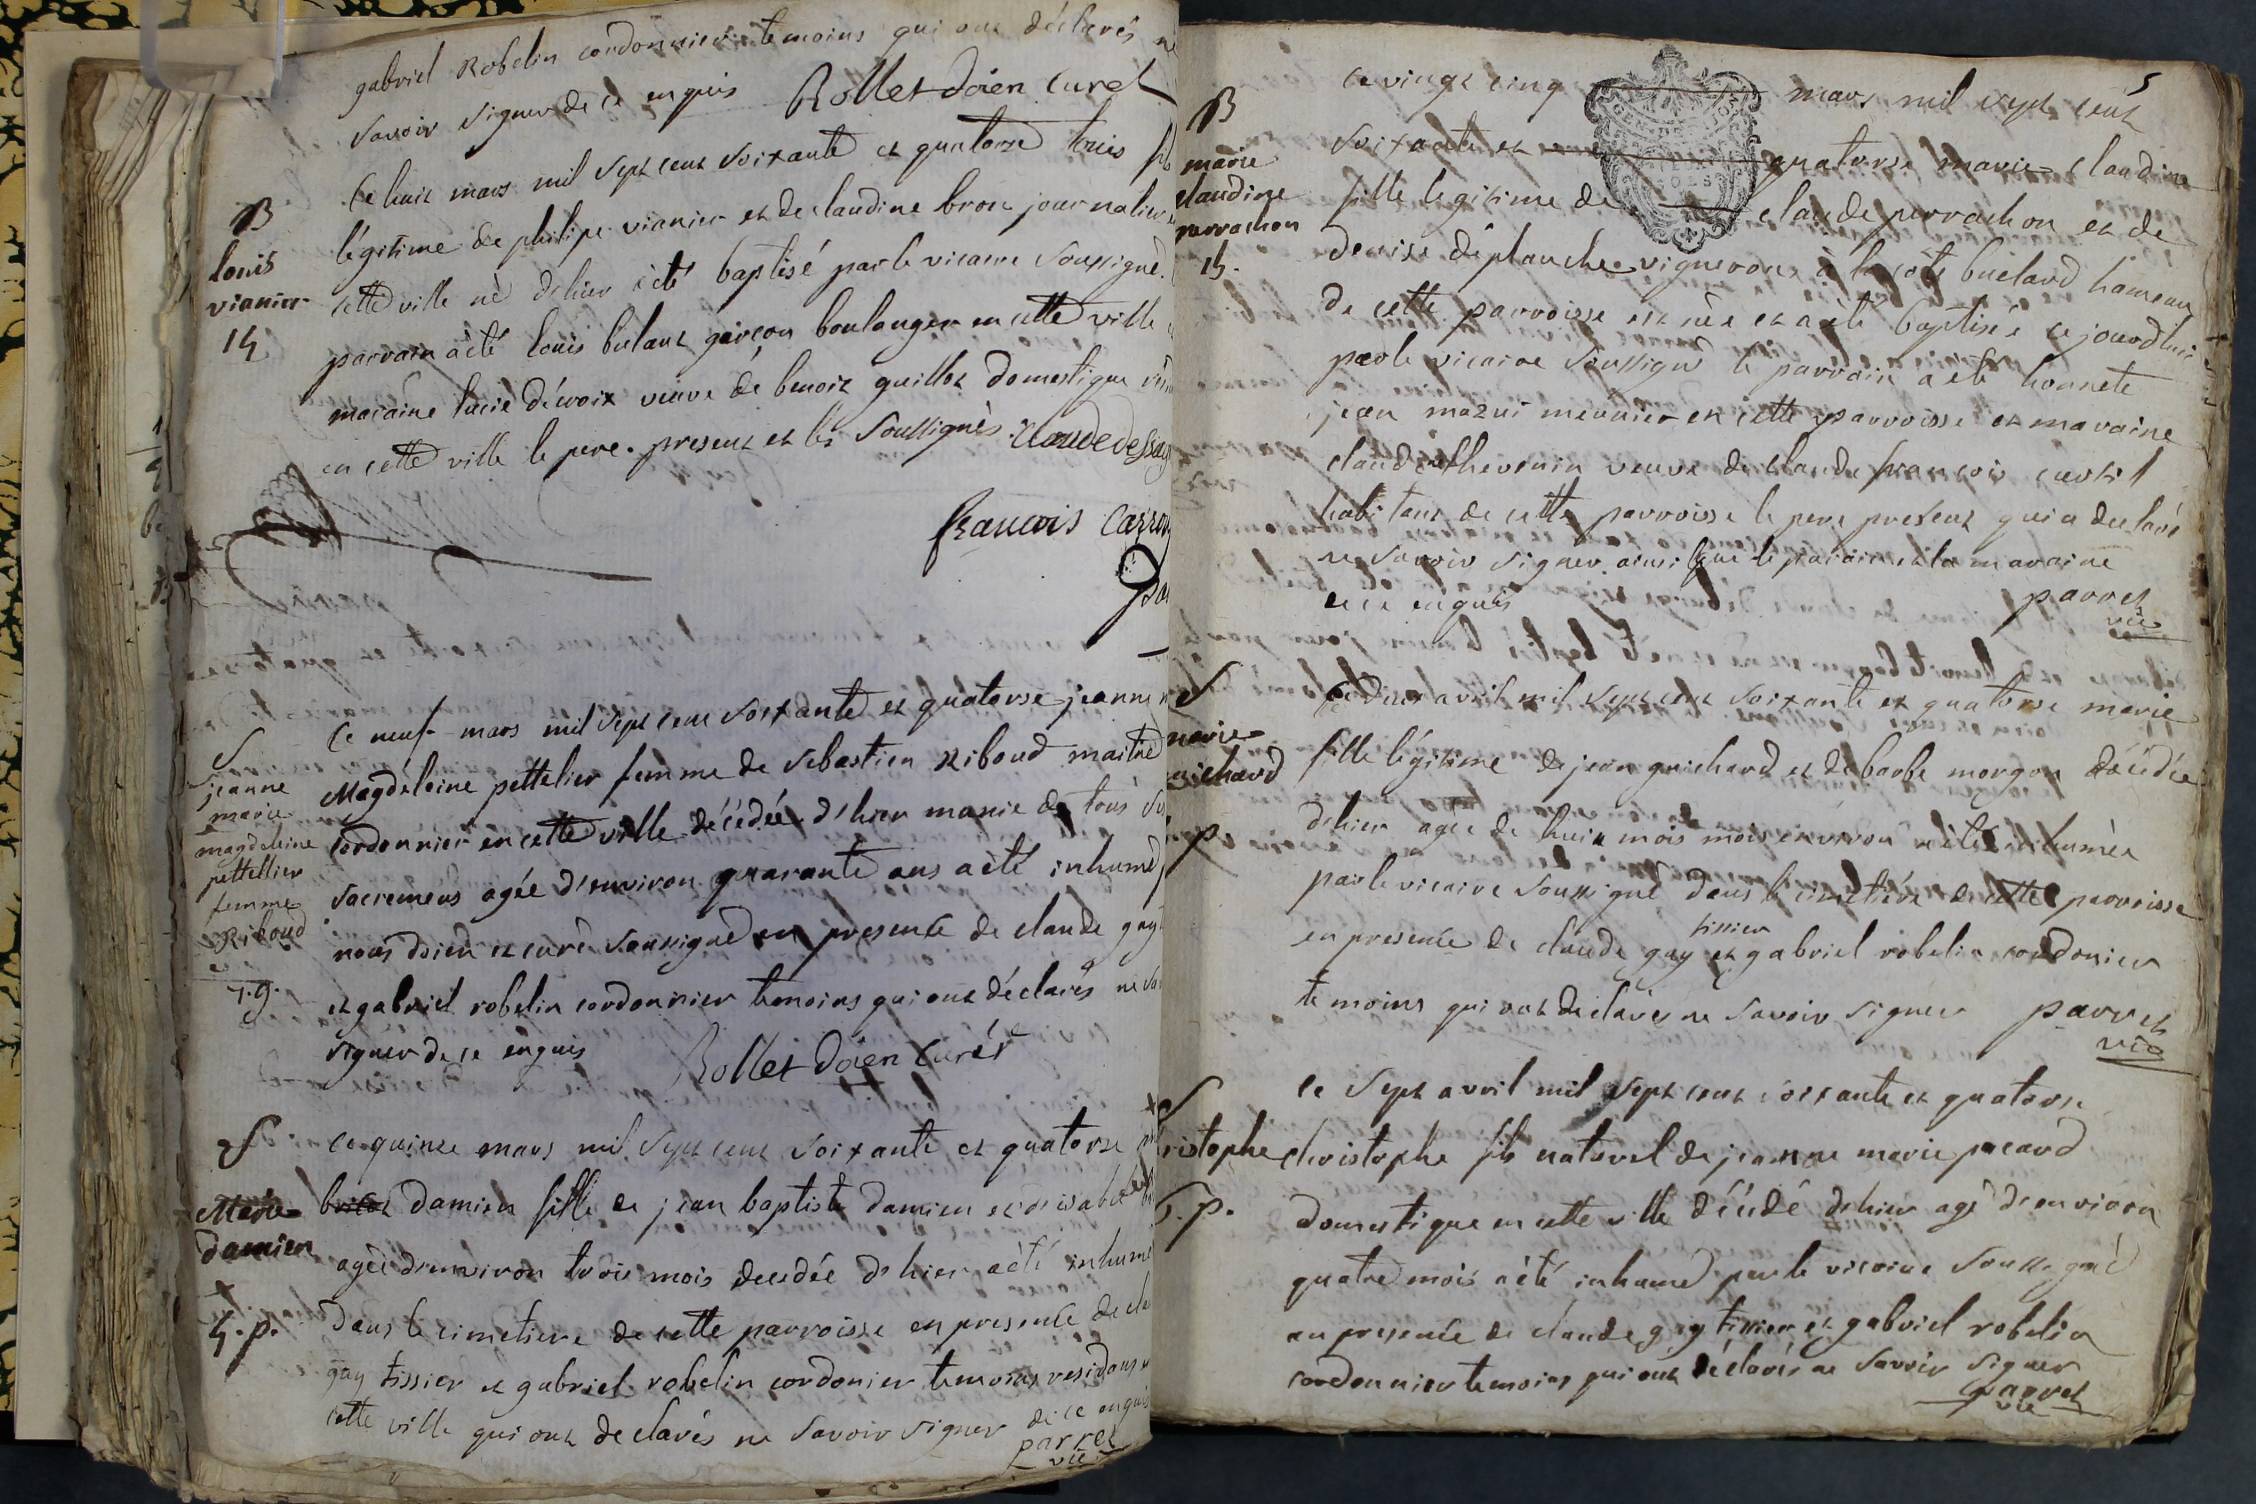 gabriel Robelin cordonnier temoins qui ont déclarés ne
savoir signer de ce enquis Rollet doien curé
B
louis
vianier
14
Ce huit mars mil sept cent soixante et quatorse louis fils
légitime de philipe vianier et de claudine bron journalier
cette ville né d'hier a èté baptisé par le vicaire soussigné
parrain a èté louis bulant garçon boulanger en cette ville
maraine lucie décroix veuve de benoit guillot domestique
en cette ville le pere present et les soussignès Claude dessay
francois Carron
S
jeanne
marie
magdeleine
pettellier
femme
Riboud
Ce neuf mars mil sept cent soixante et quatorse jeanne
Magdeleine pettelier femme de sebastien Riboud maitre
cordonnier en cette ville décédée d'hier munie de tous
sacremens agée d'environ quarante ans a èté inhumé
nous doien et curé soussigné en presence de claude gay
et gabriel robelin cordonnier temoins qui ont déclarés ne
signer de ce enquis Rollet doien curé
S
Marie
damien
4. p.
Ce quinse mars mil sept cent soixante et quatorse
damien fille de jean baptiste damien et
agée d'environ trois mois decedée d'hier a èté inhumé
dans le cimetiere de cette parroisse en presence de
gay tissier et gabriel robelin cordonier temoins residans
cette ville qui ont declarés ne savoir signer de ce enquis
parret
vic
5
B
marie
claudine
perrachon
15.
Ce vingt cinq mars mil sept cent
soixante et quatorse marie claudine
fille legitime de claude perrachon et de
denise déplanche vigneron à la côte buelard hameau
de cette parroisse est née et a èté baptisée ce jourdhui
par le vicaire soussigné le parrain a èté honnete
jean mazui meunier en cette parroisse et maraine
claudine thevenin veuve de claude françois curtil
habitant de cette parroisse le pere present qui a declaré
ne savoir signer ainsi que le parain et la maraine
de ce enquis parret
vic
S
marie
guichard
p.
Ce deux avril mil sept cent soixante et quatorse marie
fille légitime de jean guichard et de barbe morgon décédée
d'hier agée de huit mois mois environ a èté inhumée
par le vicaire soussigné dans le cimetière de cette parroisse
en presence de claude gay tissier et gabriel robelin cordonier
temoins qui ont déclarés ne savoir signer parret
vic
S
ristophe
p.
Ce sept avril mil sept cent soixante et quatorse
christophe fils naturel de jeanne marie pacard
domestique en cette ville décédé d'hier agé d'environ
quatre mois a èté inhumé par le vicaire soussigné
en presence de claude gay tissier et gabriel robelin
cordonnier temoins qui ont déclarés ne savoir signer
parret
vic